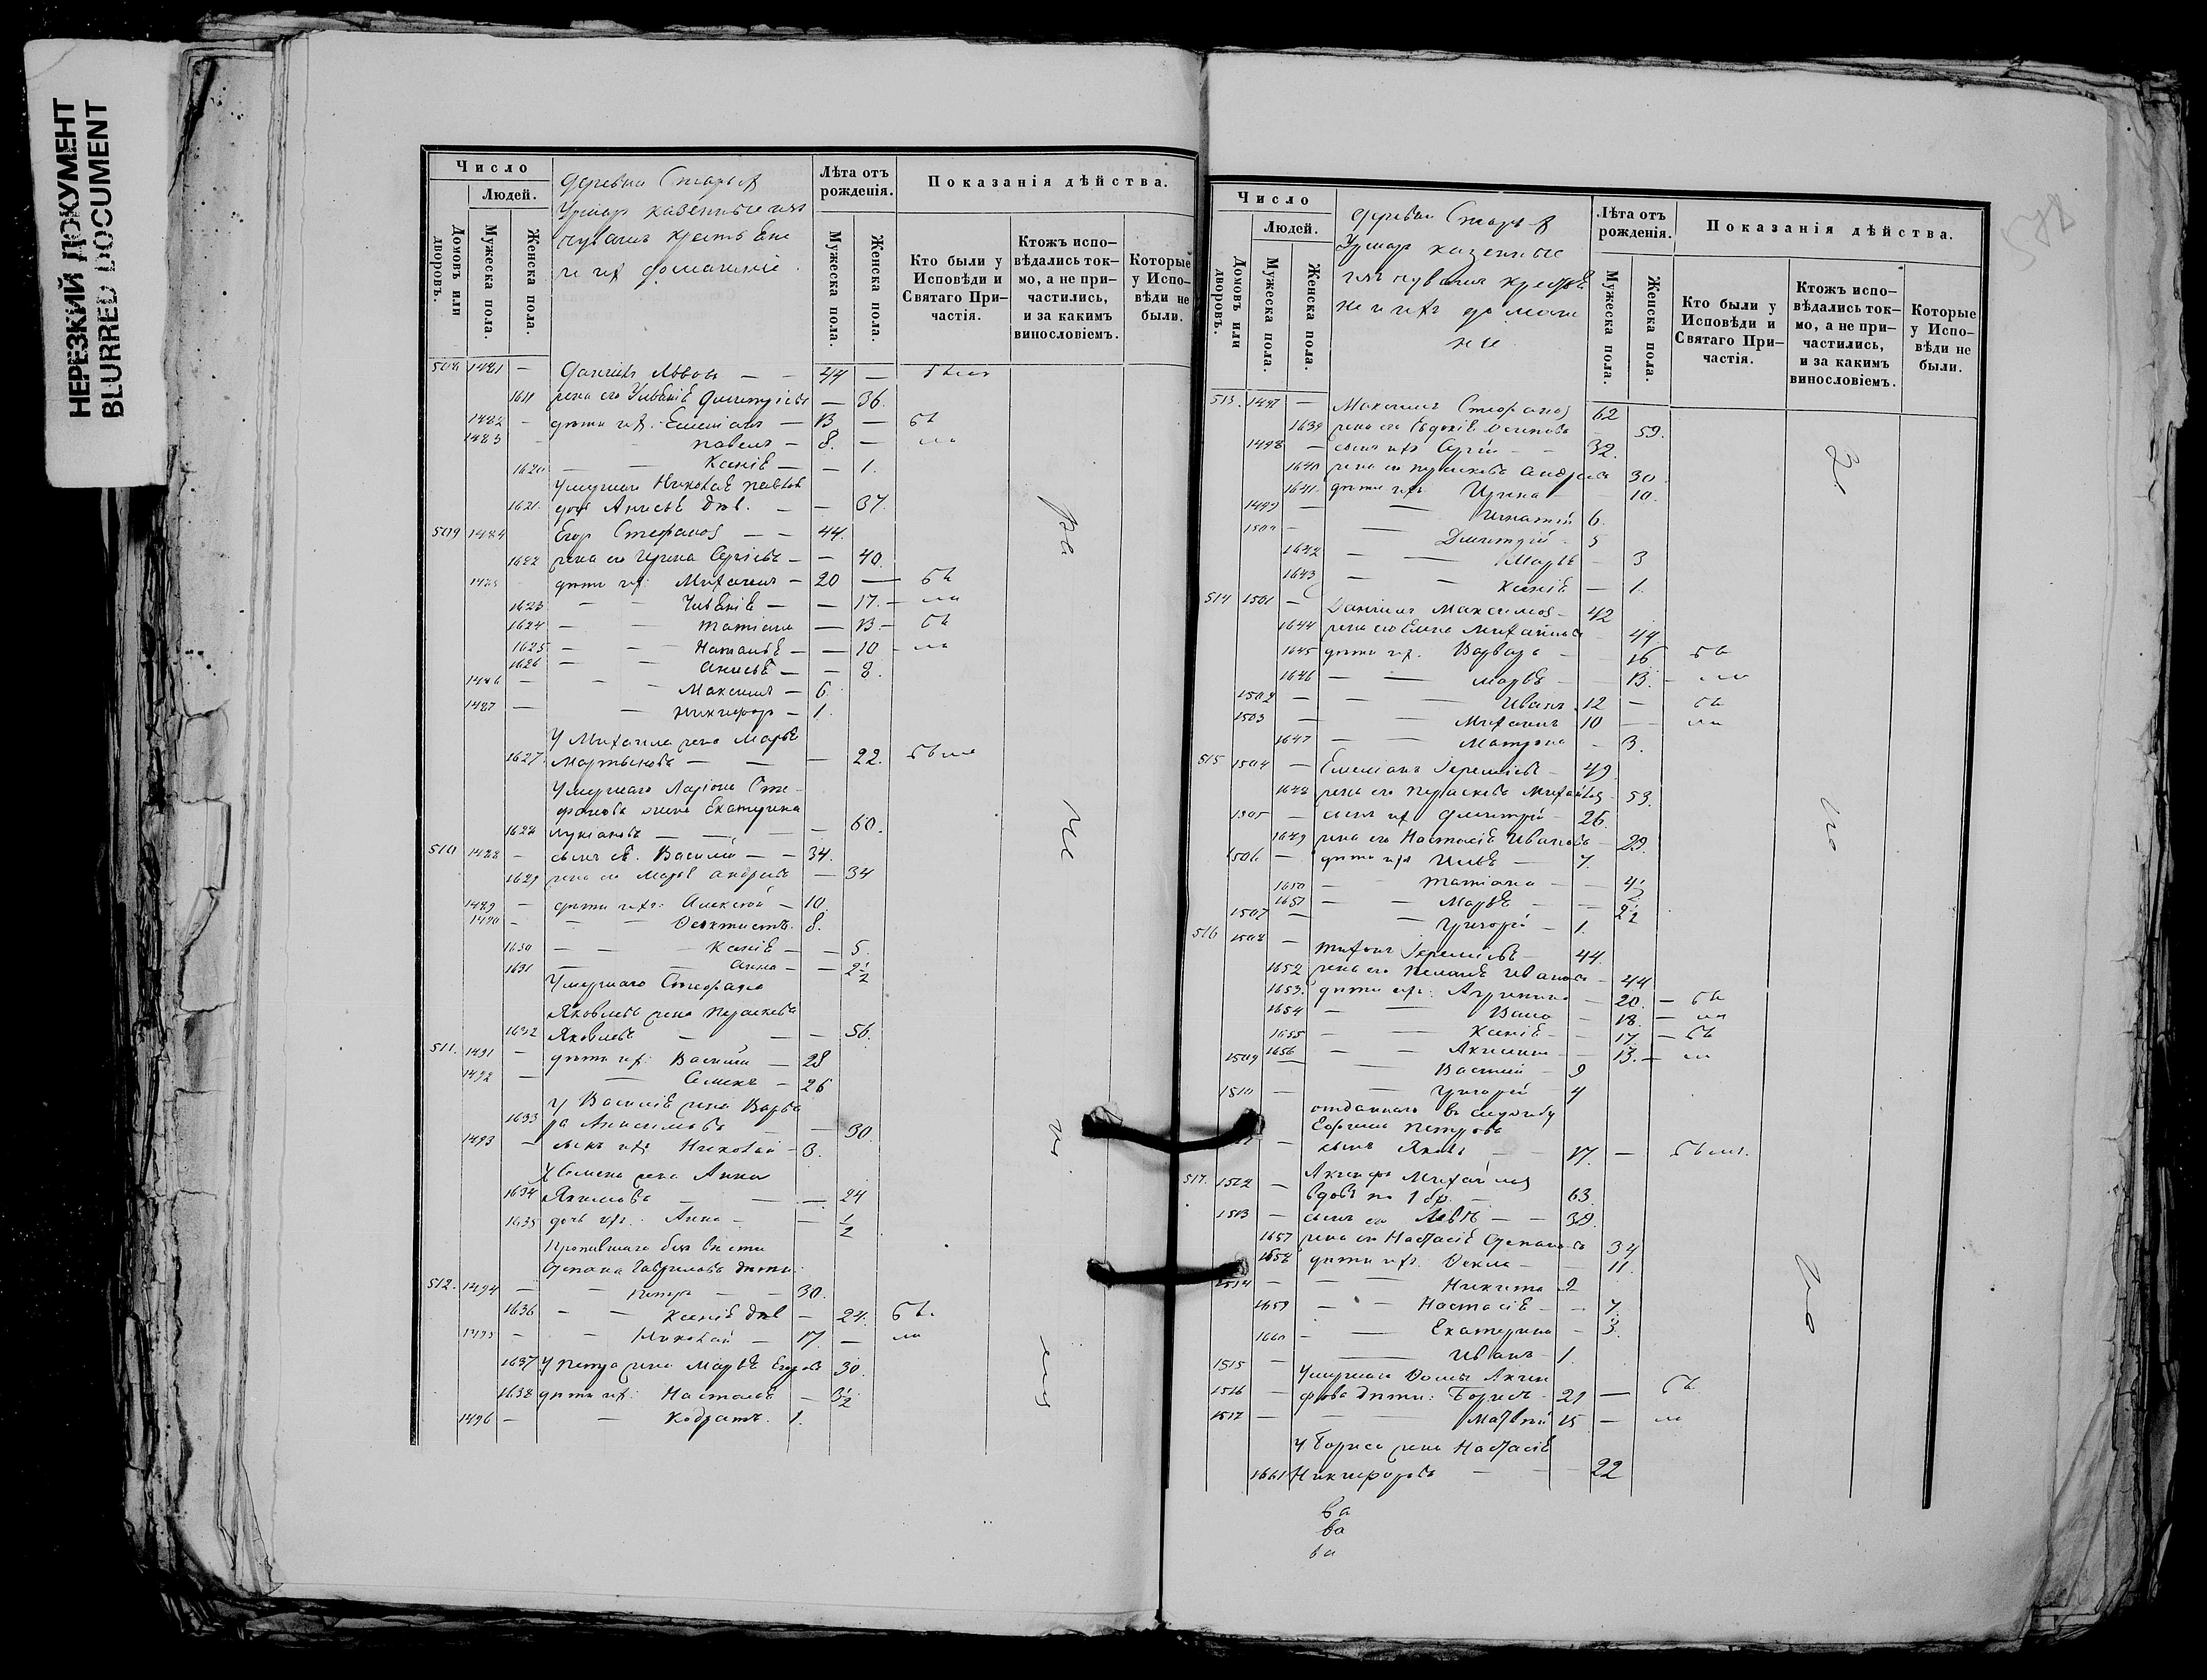 НЕРЕЗКИЙ ДОКУМЕНТ
BLURRED DOCUMENT
Число
Людей.
Домовъ или дворовъ.
Мужеска пола.
Женска пола.
деревни Старыхъ
Урмар казенные изъ
чувашъ крестьяне
и ихъ домашніе.
Лѣта отъ рожденія.
Мужеска пола.
Женска пола.
Показанія дѣйства.
Кто были у Исповѣди и Святаго Причастія.
Ктожъ исповѣдались токмо, а не причастились, и за какимъ винословіемъ.
Которые у Исповѣди не были.
508 1481 — Даніилъ Львовъ — — 44 — были
1619 жена его Улья́нія Димитріева — 36.
1482 — дѣти ихъ: Емеліанъ — 13 — бы
1483 — Павелъ — 8. — ли
1620 — — Ксенія — — 1.
Умершаго Николая
1621. дочь Анисья двк. — — 37.
509 1484 Егор Стефанов — — 44.
1622 жена его Ирина Сергіева — — 40.
1485 дѣти их: Михаилъ — 20 — бы
1623 — — Ульянія — — 17. — ли
1624 — — Татіана — 13 — бы
1625 — — Наталья — — 10 — ли
1626 — — Анисья — — 8.
1486 — — Максимъ — 6.
1487 — — Никифор — 1.
У Михаила жена Марья
1627. Мартынова — — — 22. были
Умершаго Ларіона Сте-
фанова жена Екатерина
1628 Лукіанова — — — 60.
510 1488 — сынъ ея. Василій — — 34.
1629 жена его Марья Андреева — 34
1489 — дѣти ихъ: Алексѣй — 10.
1490 — — Феоктистъ. 8.
1630 — — Ксенія — — 5.
1631 — — Анна — — 2½
Умершаго Стефана
Яковлева жена Параскева
1632 Яковлева — — — 56.
511. 1491 — дѣти их: Василій — 28
1492 — — Семенъ — 26
У Василія жена Варва
1633 ра Анисимова — — 30.
1493 — сынъ ихъ Николай — 3.
У Семена жена Анна
1634 Якимова — — — 24
1635 дочь ихъ. Анна — — ½
Пропавшаго безъ вѣсти
Степана Гаврилова дѣти:
512. 1494 — — Петръ — — 30.
1636 — — Ксенія двк — 24. бы
1495 — — Николай — 17. — ли
1637 У Петра жена Марья Егорова 30.
1638 дѣти их: Наталья — 3½
1496 — — Кодратъ. 1.
Число
Людей.
Домовъ или дворовъ.
Мужеска пола.
Женска пола.
деревни Старых
Урмар казенные
изъ чувашъ крестья
не и ихъ домаш
ніе.
Лѣта отъ рожденія.
Мужеска пола.
Женска пола.
Показанія дѣйства.
Кто были у Исповѣди и Святаго Причастія.
Ктожъ исповѣдались токмо, а не причастились, и за какимъ винословіемъ.
Которые у Исповѣди не были.
513. 1497 — Максимъ Стефанов 62
1639 жена его Евдокія Осипова 59.
1498 — сынъ ихъ Сергій — — 32.
1640 жена его Параскева Андреева 30.
1641. дѣти ихъ. Ирина — 10.
1499 — — Игнатій 6.
1500 — — Димитрій — 5
1642 — — Марья — 3
1643 — — Ксенія — 1.
514 1501 — Даніилъ Максимов — 42
1644 жена его Елена Михайлова 44.
1645 дѣти их. Варвара — 16 бы
1646 — — Марья — 13. — ли
1502 — — Иванъ 12 — бы
1503 — — Михаилъ 10 — ли
1647 — — Матрона — 3.
515 1504 — Емеліанъ Іереміевъ — 49.
1648 жена его Параскева Михайлова 53.
1505 — сынъ их Димитрій — 26.
1649 жена его Настасія Иванова 29.
1506 — дѣти ихъ Илья — 7.
1650 — — Татіана — 4½
1651 — — Марья — — 2½
1507 — — Григорій — 1.
516 1508 — Тихонъ Іереміевъ — 44
1652 жена его Пелагія Иванова — 44
1653. дѣти ихъ: Агрипина — 20. — бы
1654 — 18. — ли
1655 — — Ксенія — — 17. — бы
1656 — — Акилина — 13. — ли
1509 — Василій — 9
1510 — — Григорій 4
отданнаго въ службу
Петрова
— сынъ Яковъ — — 17. — были.
517. 1512 — Акинфъ Михайлов
вдовъ по 1 бр. — 63.
1513 — сынъ его Левъ — — 39.
1657 жена его Настасія Степанова 34
1658 дѣти ихъ. Фекла — 11.
1514 — — Никита 9
1659 — — Настасія — — 7.
1660 — — Екатерина — 3.
1515 — — Иванъ — 1.
Умершаго Фомы Акин
1516 — фова дѣти: Борисъ — 21 — бы
1517 — — Матвѣй 15 — ли
У Бориса жена Настасія
1661 Никифорова — — 22
ва
ва
ва